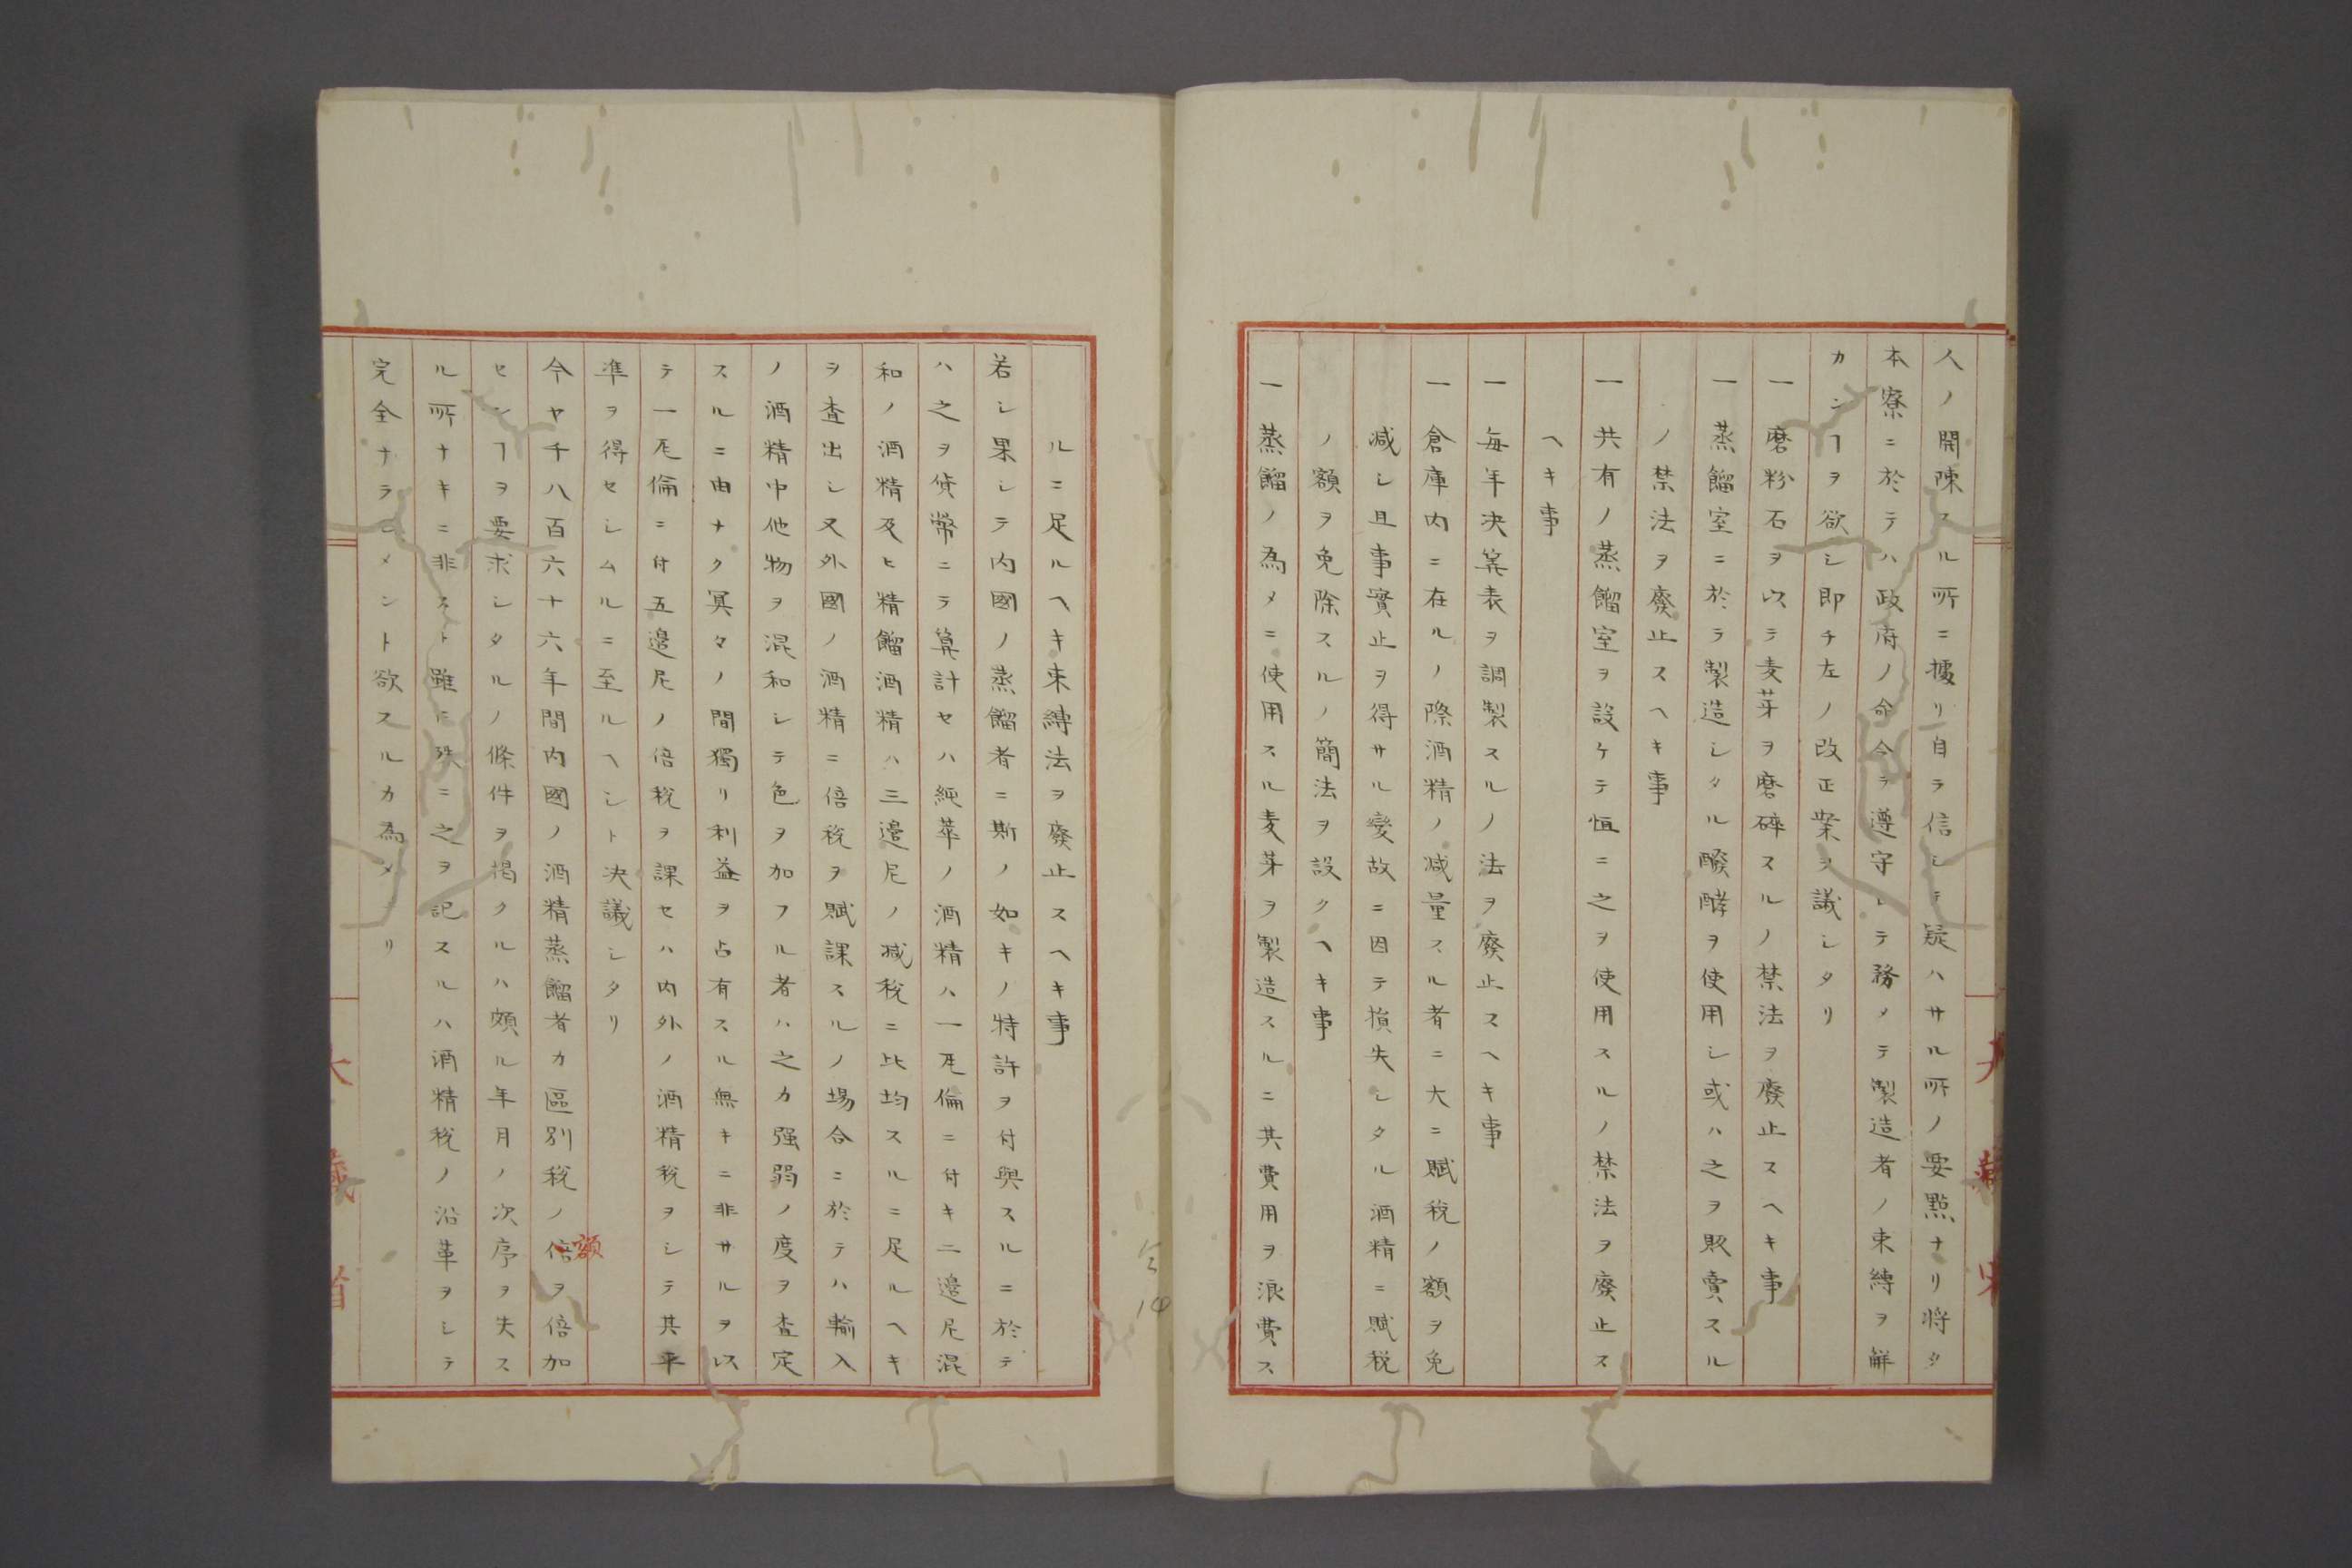 人ノ開陳スル所ニ據リ自ラ信シテ疑ハサル所ノ要點ナリ將タ
本寮ニ於テハ政府ノ命令ヲ遵守シテ務メテ製造者ノ束縛ヲ解
カンヿヲ欲シ即チ左ノ改正案ヲ議シタリ
一 磨粉石ヲ以テ麦芽ヲ磨碎スルノ禁法ヲ廢止スヘキ事
一 蒸餾室ニ於テ製造シタル醗酵ヲ使用シ或ハ之ヲ販賣スル
ノ禁法ヲ廢止スヘキ事
一 共有ノ蒸餾室ヲ設ケテ恒ニ之ヲ使用スルノ禁法ヲ廢止ス
ヘキ事
一 毎年决筭表ヲ調製スルノ法ヲ廢止スヘキ事
一 倉庫内ニ在ルノ際酒精ノ减量スル者ニ大ニ賦税ノ額ヲ免
减シ且事實止ヲ得サル變故ニ因テ損失シタル酒精ニ賦税
ノ額ヲ免除スルノ簡法ヲ設クヘキ事
一 蒸餾ノ為メニ使用スル麦芽ヲ製造スルニ其費用ヲ浪費ス
ルニ足ルヘキ束縛法ヲ廢止スヘキ事
若シ果シテ内國ノ蒸餾者ニ斯ノ如キノ特許ヲ付與スルニ於テ
ハ之ヲ貨幣ニテ算計セハ純苹ノ酒精ハ一瓦倫ニ付キ二邉尼混
和ノ酒精及ヒ精餾酒精ハ三邉尼ノ减税ニ比均スルニ足ルヘキ
ヲ査出シ又外國ノ酒精ニ倍税ヲ賦課スルノ場合ニ於テハ輸入
ノ酒精中他物ヲ混和シテ色ヲ加フル者ハ之カ强弱ノ度ヲ査定
スルニ由ナク冥々ノ間獨リ利益ヲ占有スル無キニ非サルヲ以
テ一瓦倫ニ付五邉尼ノ倍税ヲ課セハ内外ノ酒精税ヲシテ其平
凖ヲ得セシムルニ至ルヘシト决議シタリ
今ヤ千八百六十六年間内國ノ酒精蒸餾者カ區別税ノ倍額ヲ倍加
センヿヲ要求シタルノ條件ヲ掲クルハ頗ル年月ノ次序ヲ失ス
ル所ナキニ非スト雖𪜈殊ニ之ヲ記スルハ酒精税ノ沿革ヲシテ
完全ナラシメント欲スルカ為メナリ
大藏省